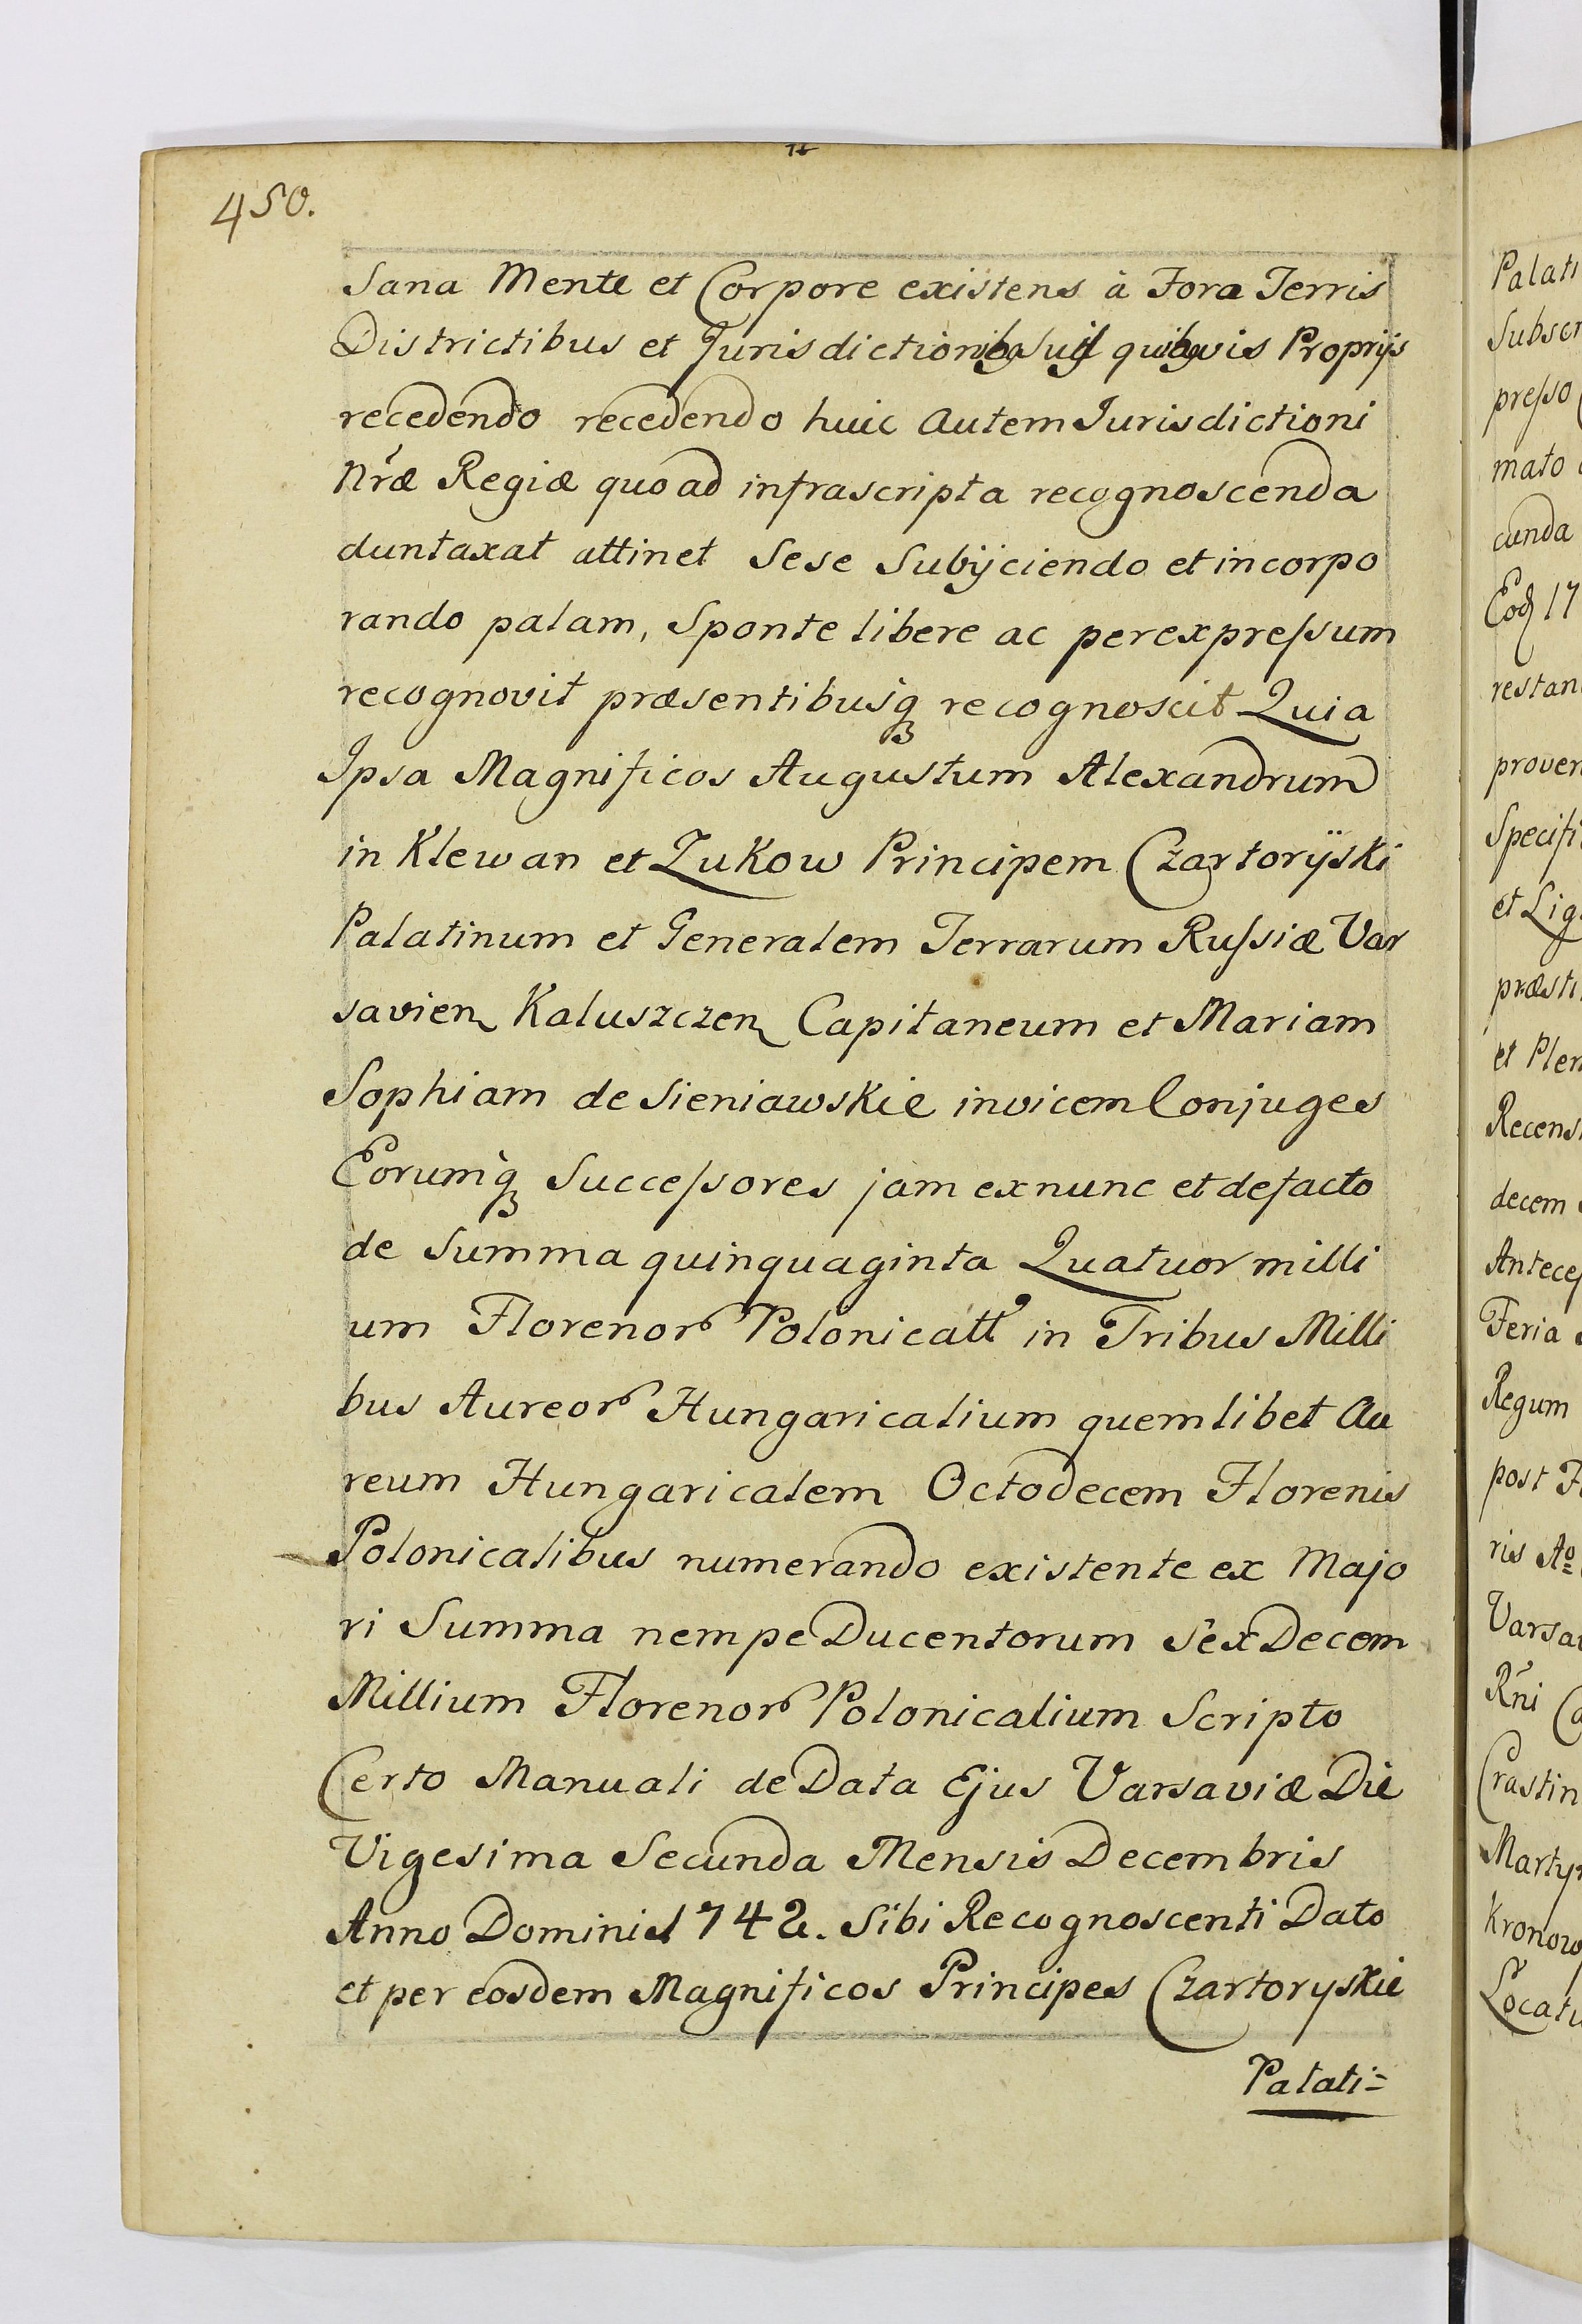 450.
Sana Mente et Corpore existens à Fora Terris
Districtibus et Jurisdictionibq Suis quibqvis Proprijs
recedendo recedendo huic autem Jurisdictioni
Nræ Regiæ quoad infrascripta recognoscenda
duntaxat attinet Sese Subijciendo et incorpo
rando palam, Sponte libere ac perexpreſsum
recognovit præsentibusq́ꝫ recognoscit Quia
Ipsa Magnificos Augustum Alexandrum
in Klewan et Zukow Principem Czartorÿski
Palatinum et Generalem Terrarum Ruſsiæ Var
savien Kaluszczen Capitaneum et Mariam
Sophiam de Sieniawskie invicem Conjuges
Eorumq́ꝫ Succeſsores jam exnunc et defacto
de Summa quinquaginta Quatuor milli
um Florenor Polonicatt in Tribus Milli
bus Aureor Hungaricalium quemlibet Au
reum Hungaricalem Octodecem Florenis
Polonicalibus numerando existente ex Majo
ri Summa nempe Ducentorum Sex Decem
Millium Florenor Polonicalium Scripto
Certo Manuali de Data Ejus Varsaviæ Die
Vigesima Secunda Mensis Decembris
Anno Domini 1742. Sibi Recognoscenti Dato
et per eosdem Magnificos Principes Czartoryskie
Palati=
Palati
Subscr
preſso
mato
cunda
Eoq 17
restan
proven
Specifi
et Lig
præsti
et Plen
Recens
decem
Antece
Feria
Regum
post F
ris Aº
Varsa
Rńi Ca
Crastin
Marty
Kronow
Locatu